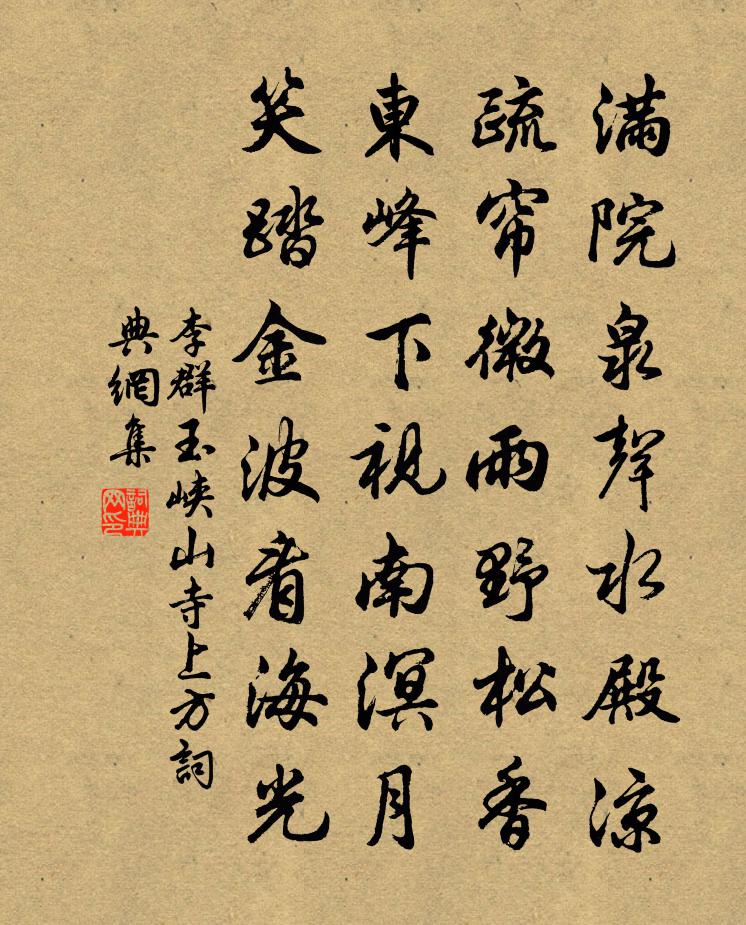 滿院泉聲水殿涼
疏帘微雨野松香
東峰下視南溟月
笑踏金波看海光
李群玉峽山寺上方詞
典網集
詞典
网印